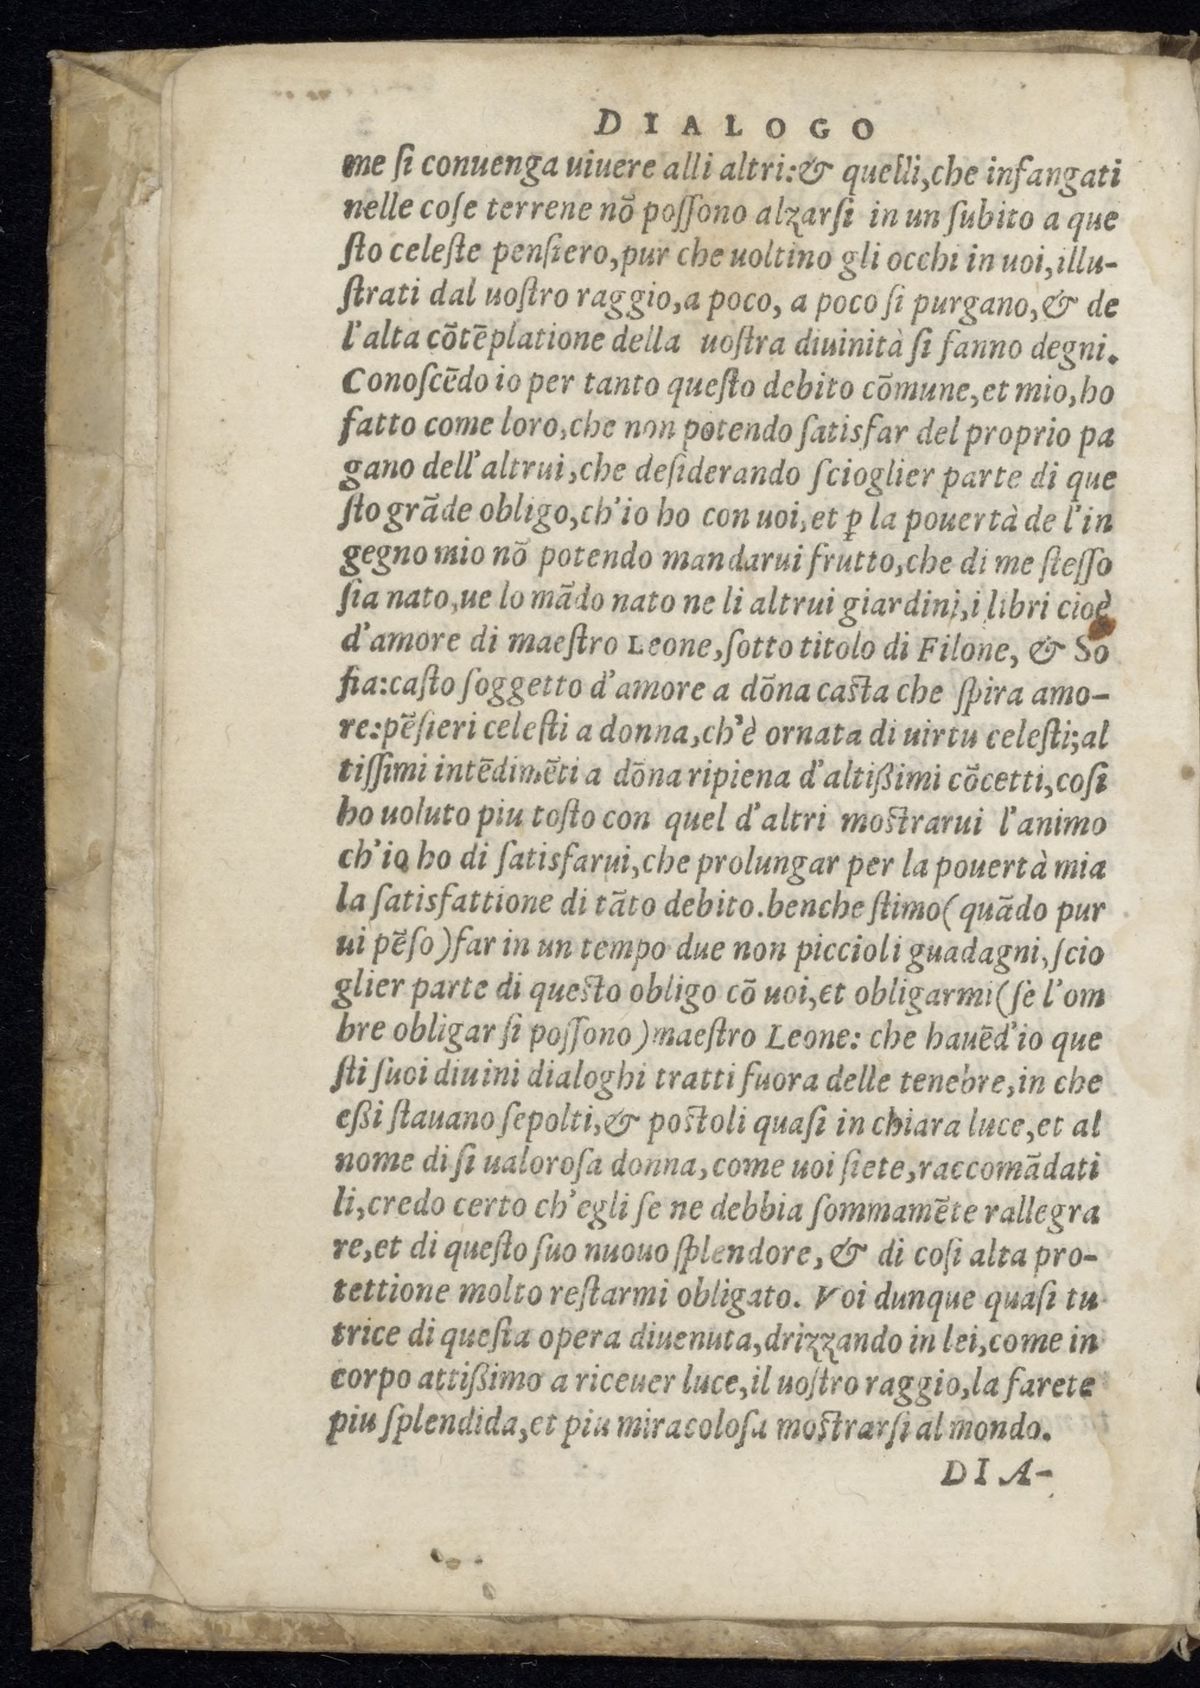 DIALOGO
me ſi conuenga uiuere alli altri:& quelli,che infangati
nelle coſe terrene nō poſſono alzarſi in un ſubito a que
ſto celeſte penſiero,pur che uoltino gli occhi in uoi,illu-
ſtrati dal uoſtro raggio,a poco, a poco ſi purgano,& de
l'alta cōtēplatione della uoſtra diuinità ſi fanno degni.
Conoſcēdo io per tanto queſto debito cōmune,et mio,ho
fatto come loro,che non potendo ſatisfar del proprio pa
gano dell'altrui,che deſiderando ſcioglier parte di que
ſto grāde obligo,ch'io ho con uoi,et ꝑ la pouertà de l'in
gegno mio nō potendo mandarui frutto,che di me ſteſſo
ſia nato,ue lo mādo nato ne li altrui giardini,i libri cioè
d'amore di maeſtro Leone,ſotto titolo di Filone, & So
fia:caſto ſoggetto d'amore a dōna caſta che ſpira amo-
re:pēſieri celeſti a donna,ch'è ornata di uirtu celeſti;al
tiſſimi intēdimēti a dōna ripiena d'altißimi cōcetti,coſi
ho uoluto piu toſto con quel d'altri moſtrarui l'animo
ch'io ho di ſatisfarui,che prolungar per la pouertà mia
la ſatisfattione di tāto debito.benche ſtimo(quādo pur
ui pēſo)far in un tempo due non piccioli guadagni,ſcio
glier parte di queſto obligo cō uoi,et obligarmi(ſe l'om
bre obligar ſi poſſono)maeſtro Leone: che hauēd'io que
ſti ſuoi diuini dialoghi tratti fuora delle tenebre,in che
eßi ſtauano ſepolti,& poſtoli quaſi in chiara luce,et al
nome di ſi ualoroſa donna,come uoi ſiete,raccomādati
li,credo certo ch'egli ſe ne debbia ſommamēte rallegra
re,et di queſto ſuo nuouo ſplendore,& di coſi alta pro-
tettione molto reſtarmi obligato. Voi dunque quaſi tu
trice di queſta opera diuenuta,drizzando in lei,come in
corpo attißimo a riceuer luce,il uoſtro raggio,la farete
piu ſplendida,et piu miracoloſa moſtrarſi al mondo.
DIA-